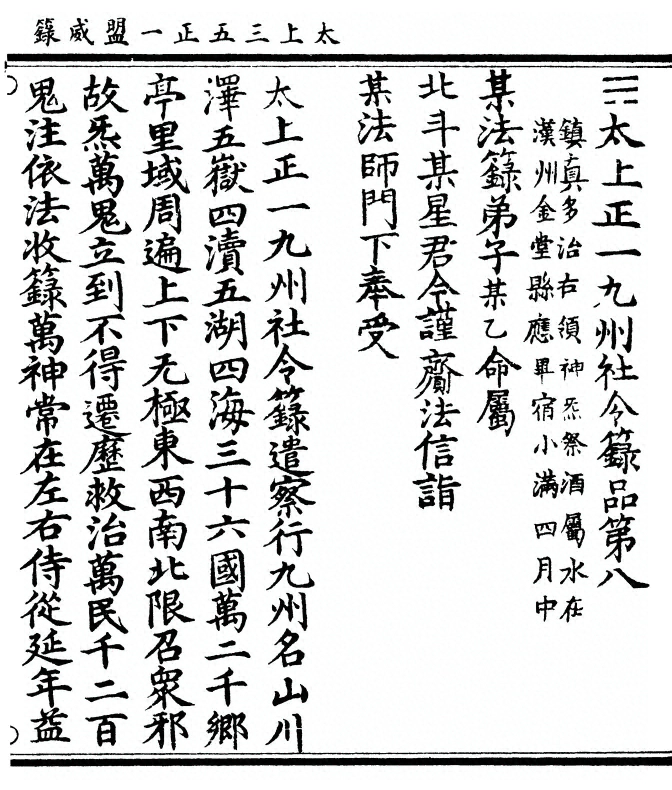 太上三五正一盟威籙
☵太上正一九州社令籙品第八
鎮真多治右領神炁祭酒屬水在
漢州金堂縣應畢宿小滿四月中
某法籙弟子某乙命屬
北斗某星君今謹齎法信詣
某法師門下奉受
太上正一九州社令籙遣察行九州名山川
澤五嶽四瀆五湖四海三十六國萬二千鄉
亭里域周遍上下无極東西南北限召眾邪
故炁萬鬼立到不得遷歷救治萬民千二百
鬼注依法收籙萬神常在左右侍從延年益